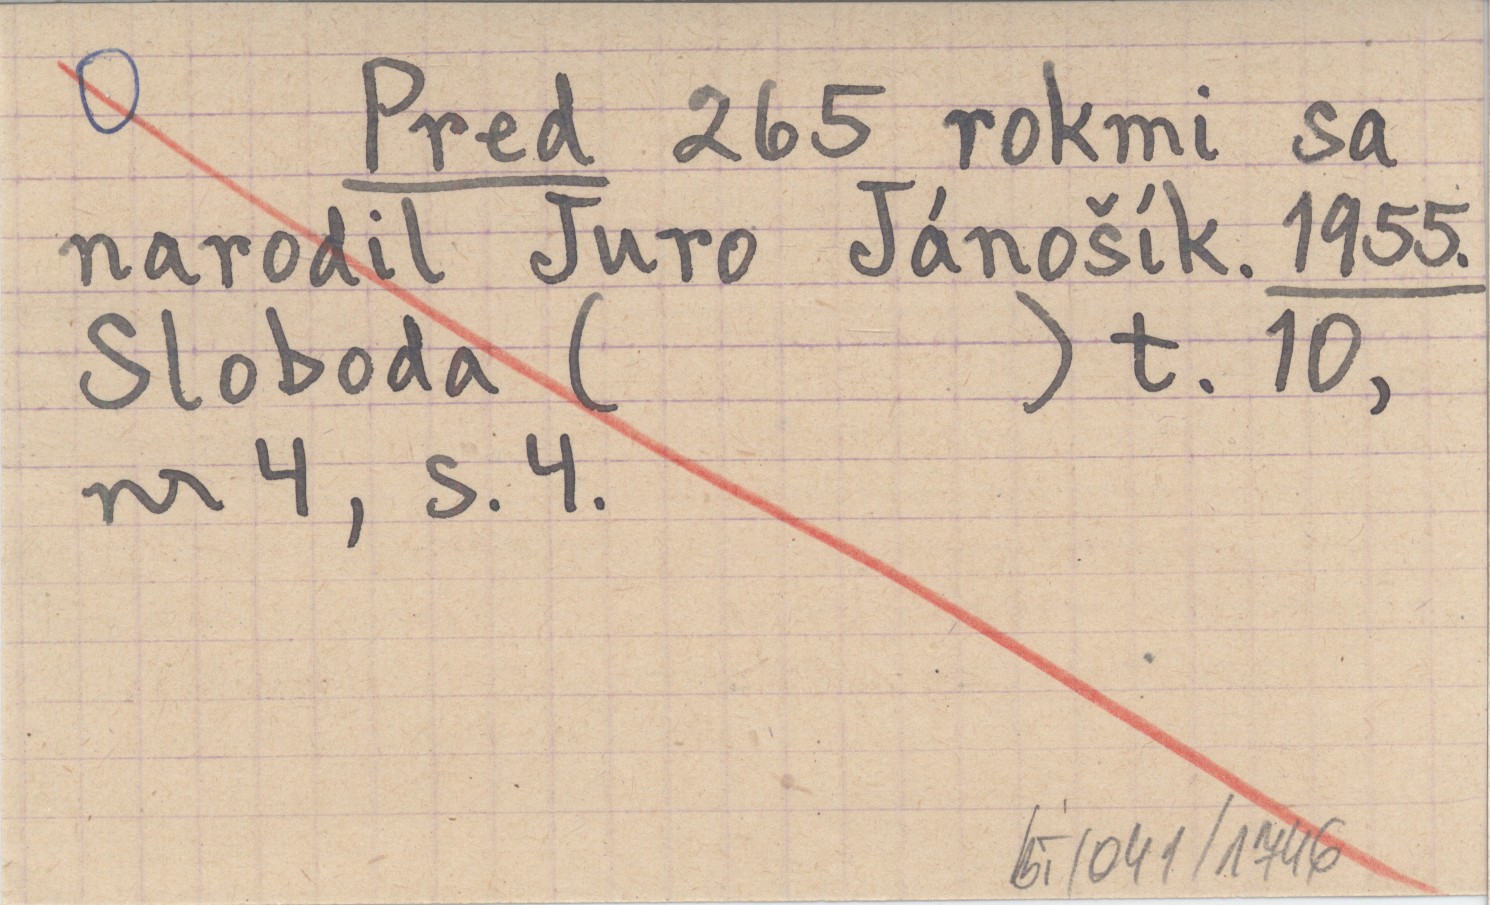 Pred 265 rokmi sa
narodil Juro Jánošík. 1955.
Sloboda ( ) t. 10,
nr 4, s. 4.
/041/1746